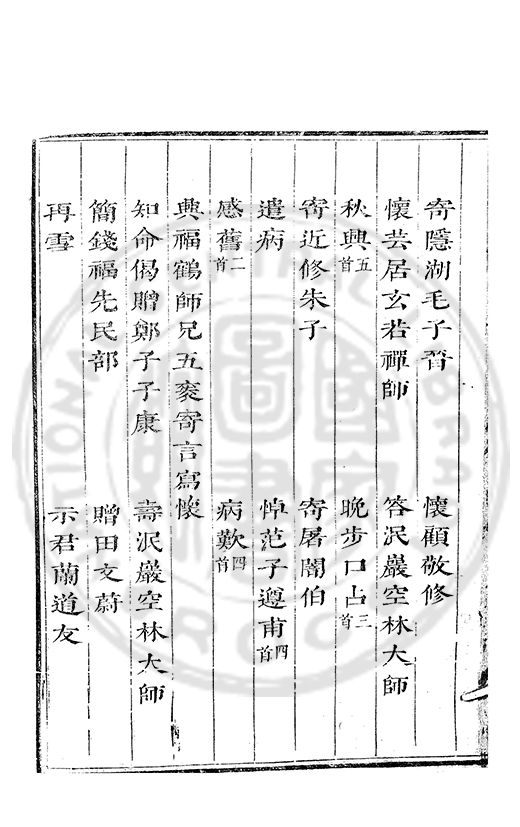 寄隱湖毛子晉　懷顧敬修
懷芸居玄若禪師　答泯巖空林大師
秋興五首　晚步口占三首
寄近修朱子　寄屠闇伯
遣病　悼范子遵甫四首
感舊二首　病歎四首
興福鶴師兄五袠寄言寫懷
知命偈贈鄭子子康　壽泯巖空林大師
簡錢福先民部　贈田文蔚
再雪　示君蘭道友